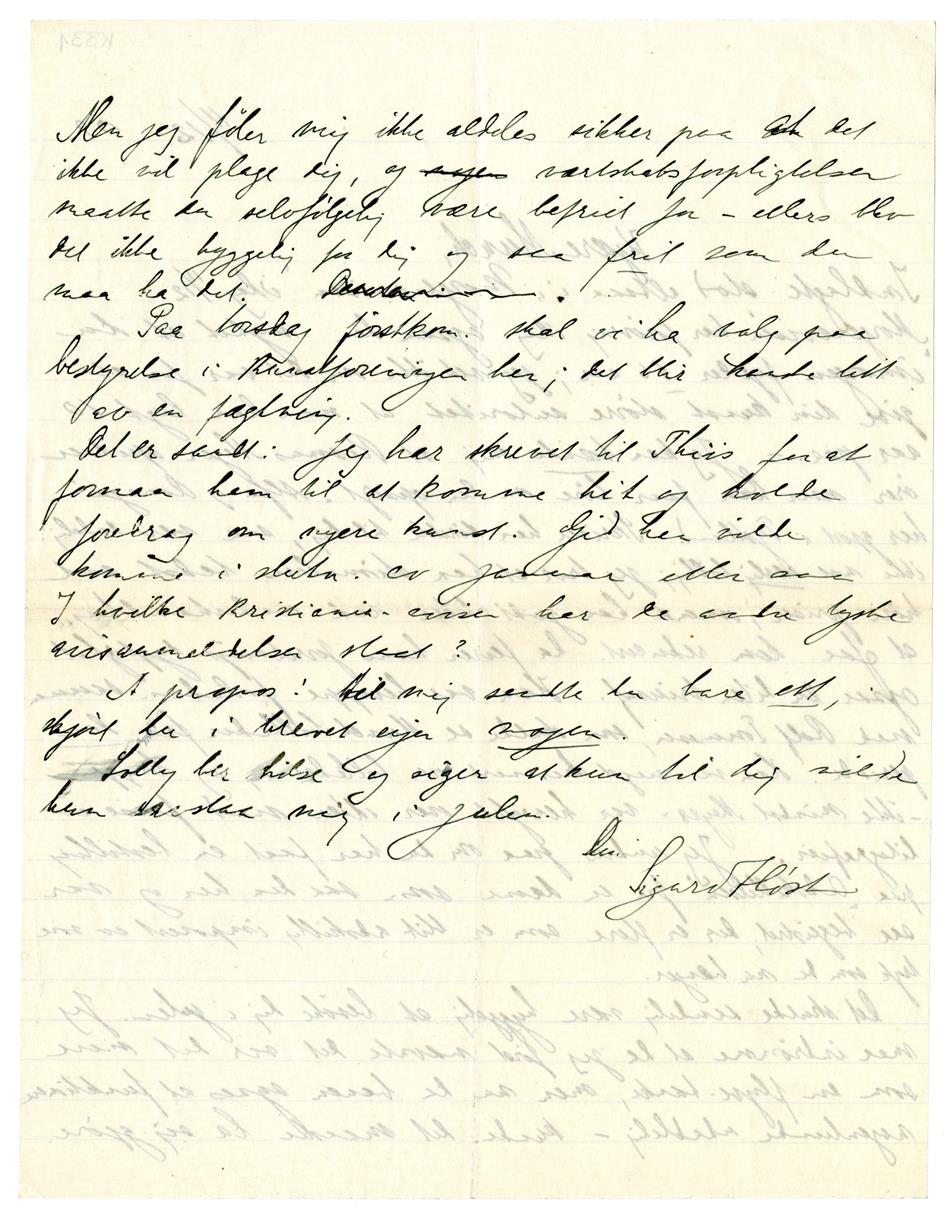 K331
Men jeg føler mig ikke aldeles sikker paa at det
ikke vil plage dig, og nogen vertskabsforpligtelser
maatte du selvfølgelig være befriet for – ellers blev
det ikke hyggelig for dig og saa frit som du
maa ha det.
Paa torsdag førstkom. skal vi ha valg paa
bestyrelse i Kunstforeningen her; det blir kanske litt
av en fægtning.
Det er sandt: Jeg har skrevet til Thiis for at
formaa ham til at komme hit og holde
foredrag om nyere kunst. Gid han vilde
komme i slutn. av januar eller saa
I hvilke Kristiania-aviser har de andre tyske
avisanmeldelser staat?
A propos! til mig sendte du bare ett,
skjønt du i brevet siger nogen.
Lolly ber hilse og siger at hun til dig vilde
hun in i julen.
Din
Sigurd Høst